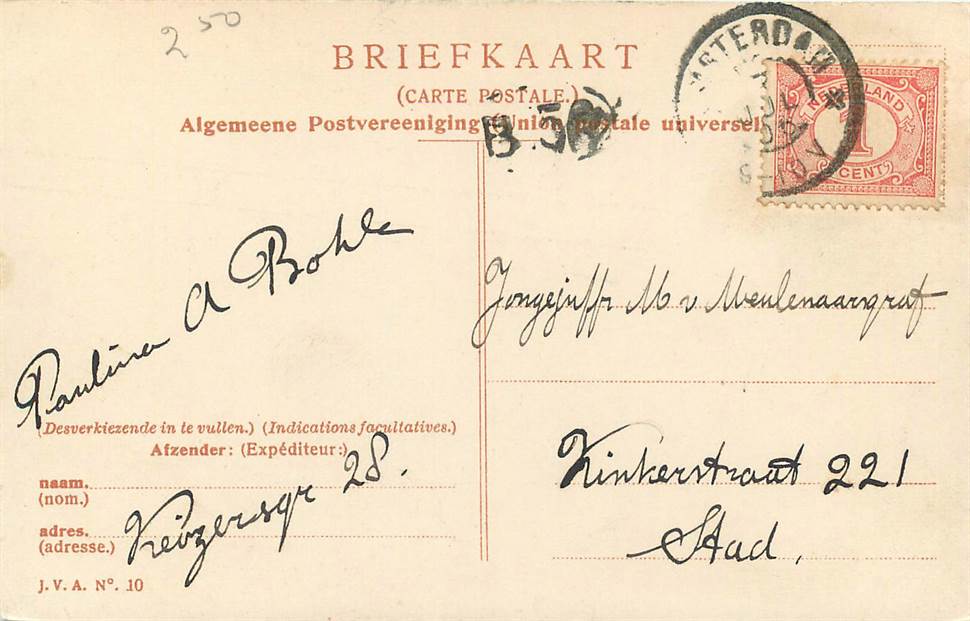 2 50
BRIEFKAART
(CARTE POSTALE.)
Algemeene Postvereeniging Union postale universel
AMSTERDAM
JUL
NEDERLAND
1
CENT
B 51
Paulina A Bohle
Jongejuffr M v Meulenaarsgraf
(Desverkiezende in te vullen.) (Indications facultatives.)
Afzender: (Expéditeur:)
Kinkerstraat 221
naam.
(nom.)
Keizersgr 28.
adres.
(adresse.)
Stad.
J. V. A. N°. 10